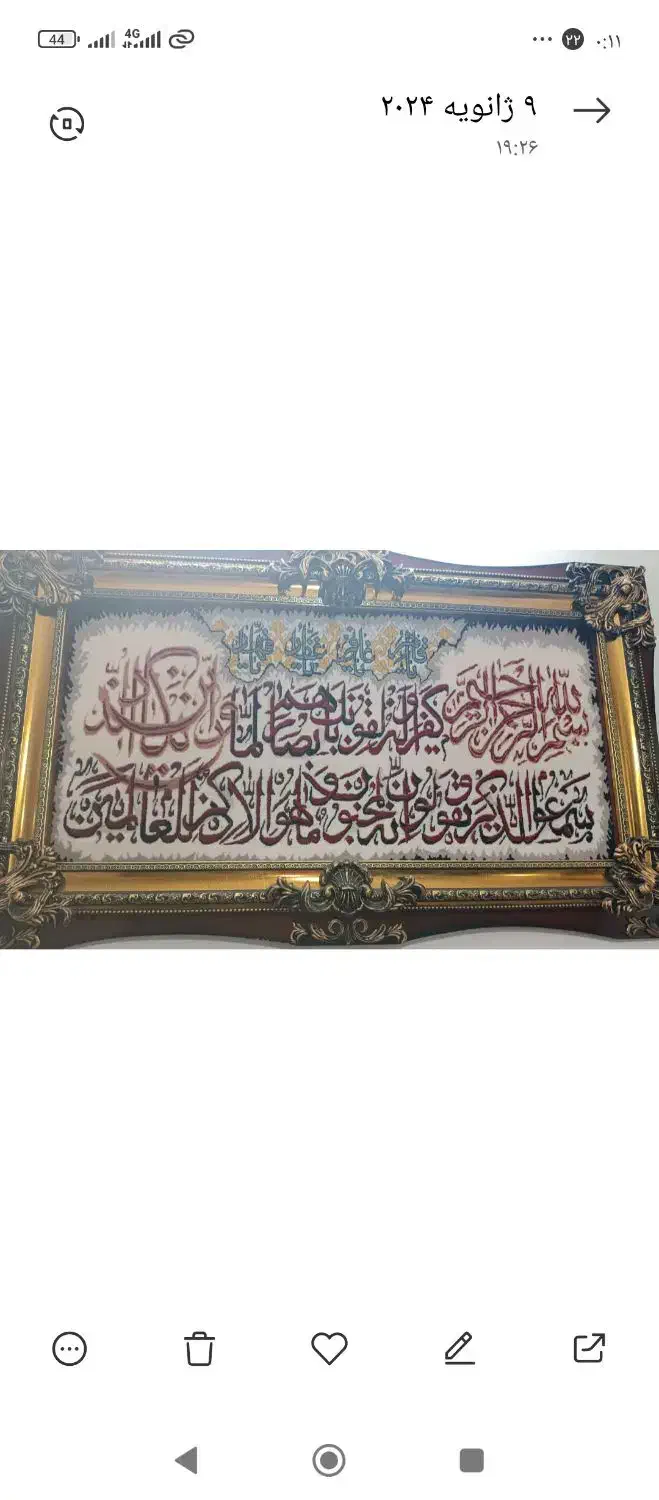 44 4G ۲۲ ۰:۱۱
۹ ژانویه ۲۰۲۴
۱۹:۲۶
بسم الله الرحمن الرحيم وان يكاد الذين كفروا ليزلقونك بابصارهم لما
سمعوا الذكر ويقولون انه لمجنون وما هو الا ذكر للعالمين